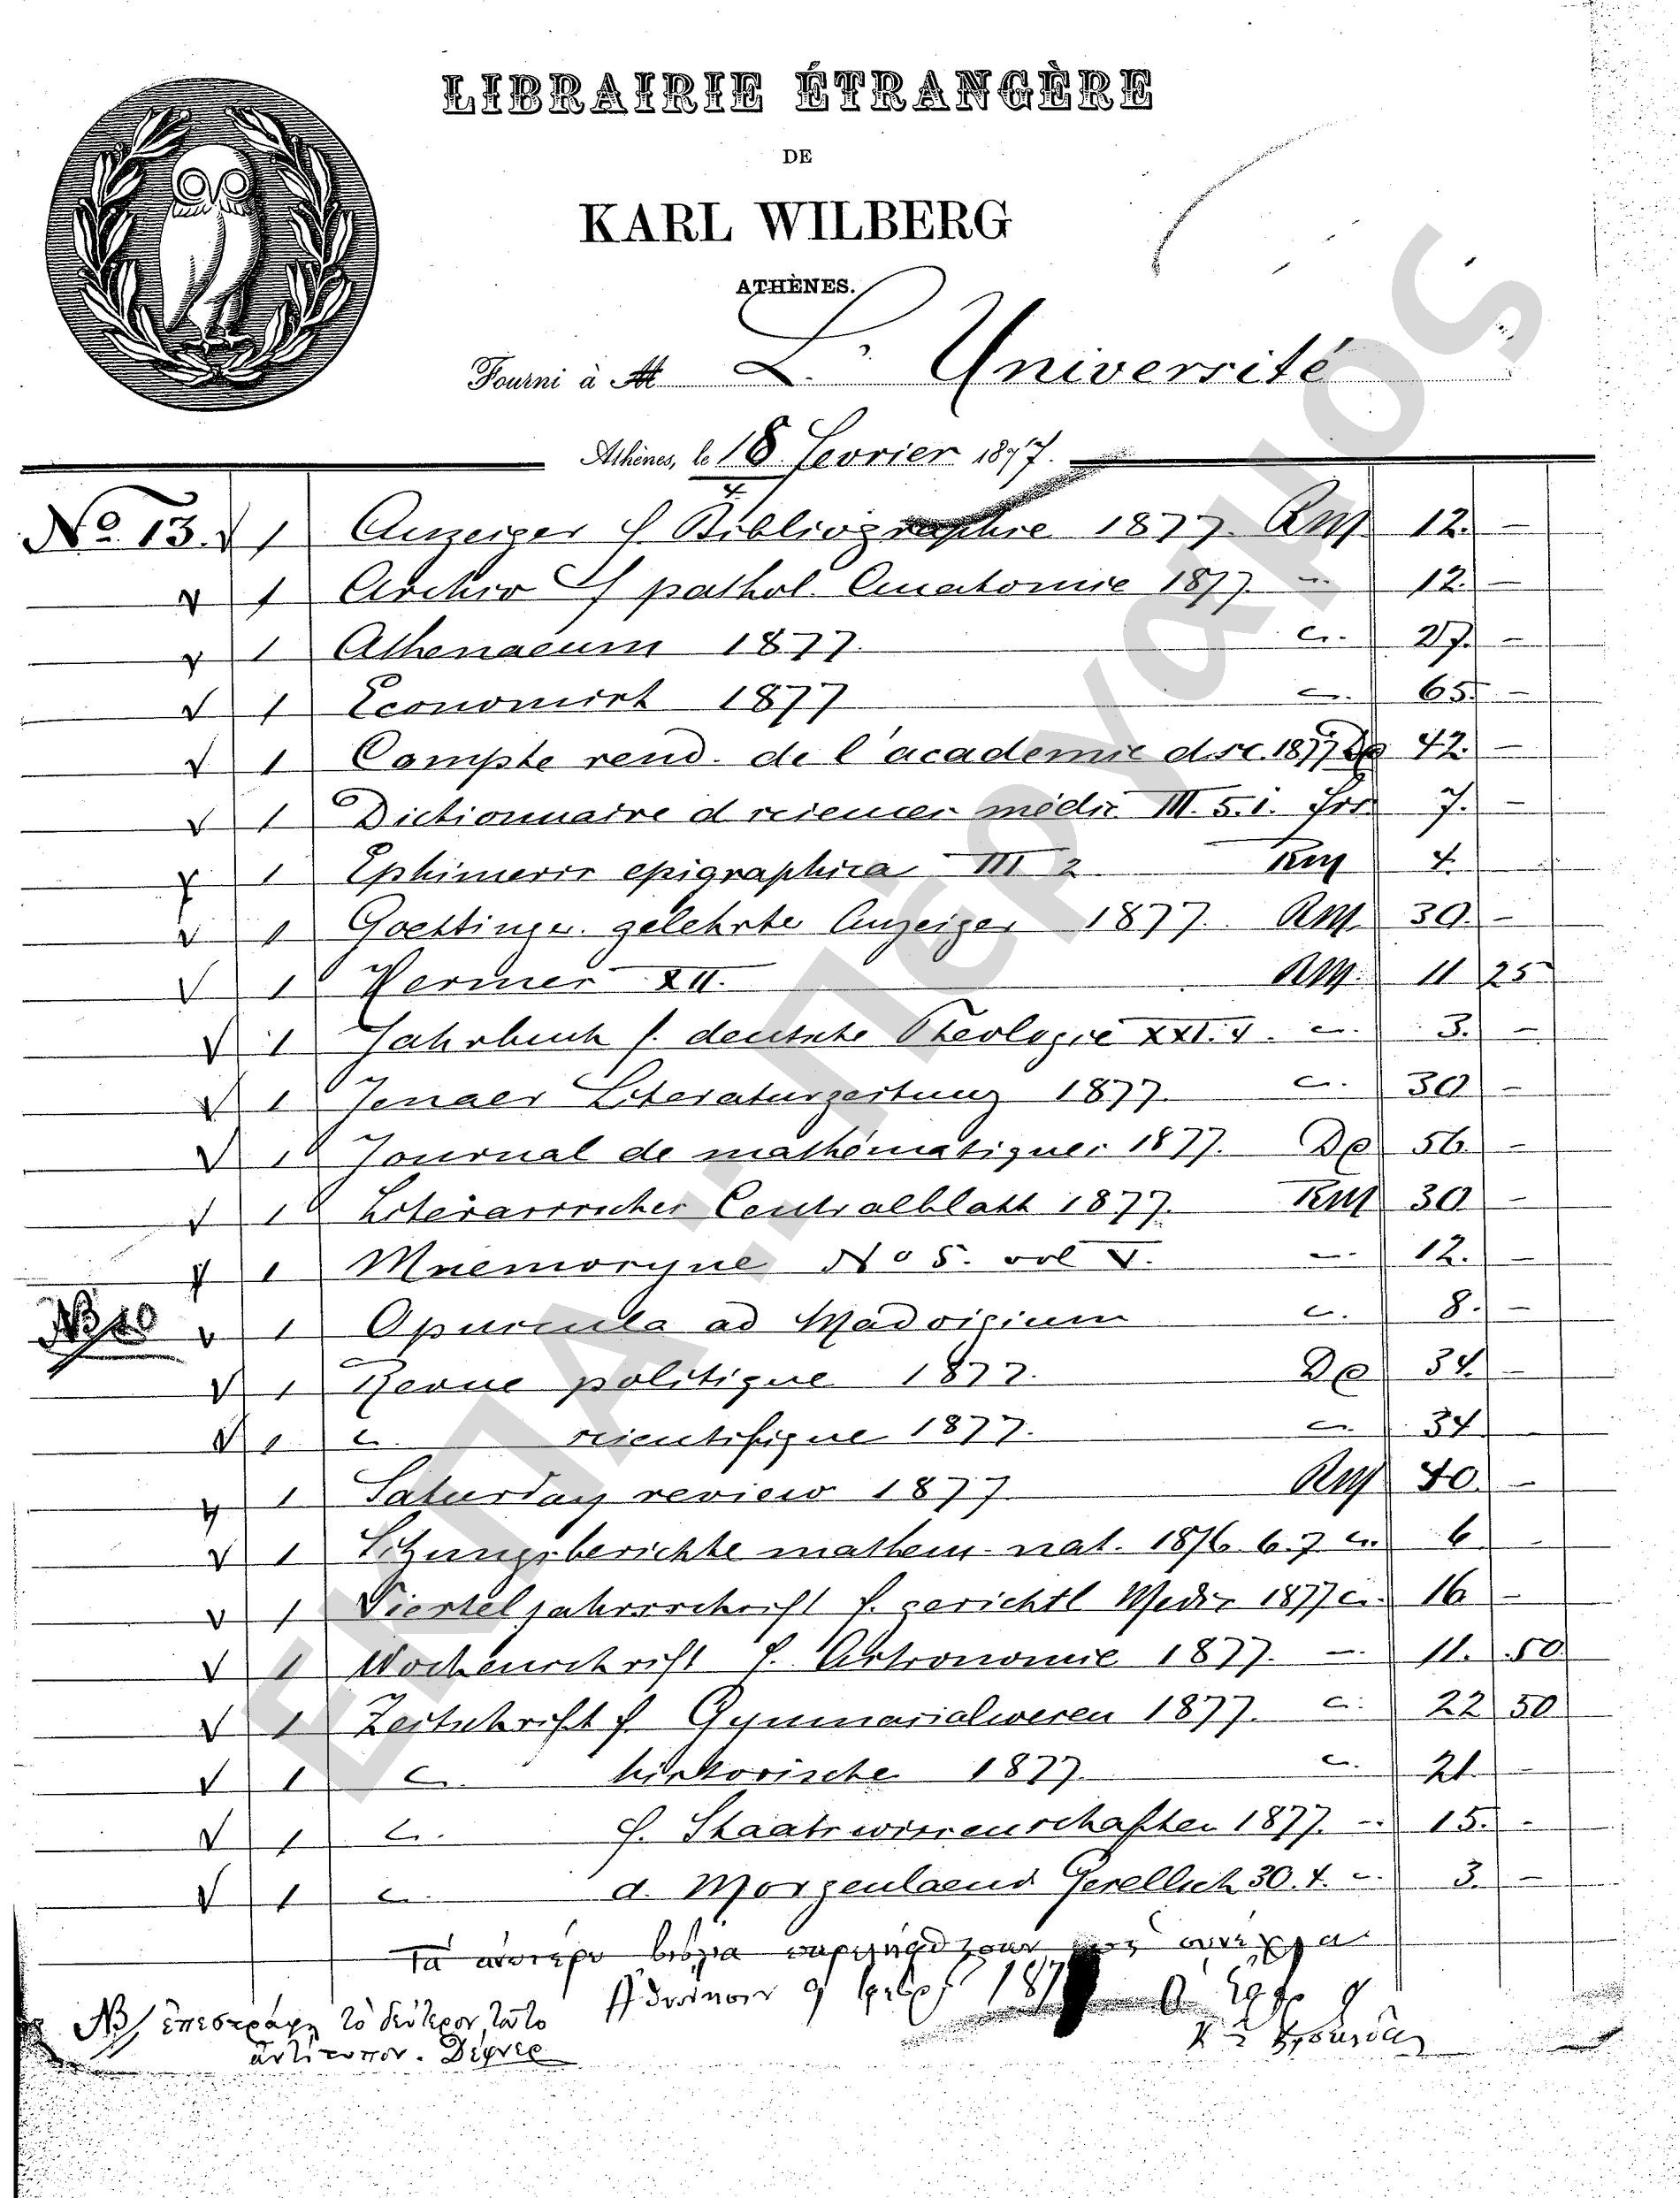 LIBRAIRIE ÉTRANGÈRE
DE
KARL WILBERG
ATHÈNES.
Fourni à M L'Université
Athènes, le 18 fevrier 1877.
No 13. √ 1 Anzeiger f Bibliographie 1877. RM 12. —
√ 1 Archiv f pathol. Anatomie 1877. " 12. —
√ 1 Athenaeum 1877. " 27. —
√ 1 Economist 1877 " 65. —
√ 1 Compte rend. de l'academie d. sc. 1877 Dp 42. —
√ 1 Dictionnaire d sciences médic III. 5. i. frs 7. —
1 Ephimeris epigraphica III 2 RM 4.
√ 1 Goettinge. gelehrte Anzeiger 1877. RM 30. —
√ 1 Hermes XII. RM. 11 25
√ 1 Jahrbuch f. deutsche Theologie XXI. 4. " 3. —
√ 1 Jenaer Literaturzeitung 1877. " 30 —
√ 1 Journal de mathématiques 1877. Dp 56. —
√ 1 Literarisches Centralblatt 1877. RM 30 —
√ 1 Mnemosyne No 5. vol V. " 12. —
NB 10 √ 1 Opuscula ad Madvigium " 8. —
√ 1 Revue politique 1877. Dp 34. —
√ 1 " scientifique 1877. " 34
√ 1 Saturday review 1877 RM 40. —
√ 1 Sitzungsberichte mathem. nat. 1876. 6. 7 " 6 -
√ 1 Vierteljahrsschrift f. gerichtl Medic 1877 " 16 —
√ 1 Wochenschrift f. Astronomie 1877. " 11. 50
√ 1 Zeitschrift f Gymnasialwesen 1877. " 22 50
√ 1 " historische 1877 " 21. —
√ 1 " f. Staatswissenschaften 1877. " 15. -
√ 1 " d. Morgenlaend Gesellsch 30. 4. " 3. —
Τὰ ἀνωτέρω βιβλία παρελήφθησαν ὡς συνέχεια
Ἀθήνησιν 9 187
NB/ ἐπεστράφη τὸ δεύτερον τοῦτο
ἀντίτυπον. Δέφνερ
ΕΚΠΑ: Πέργαμος